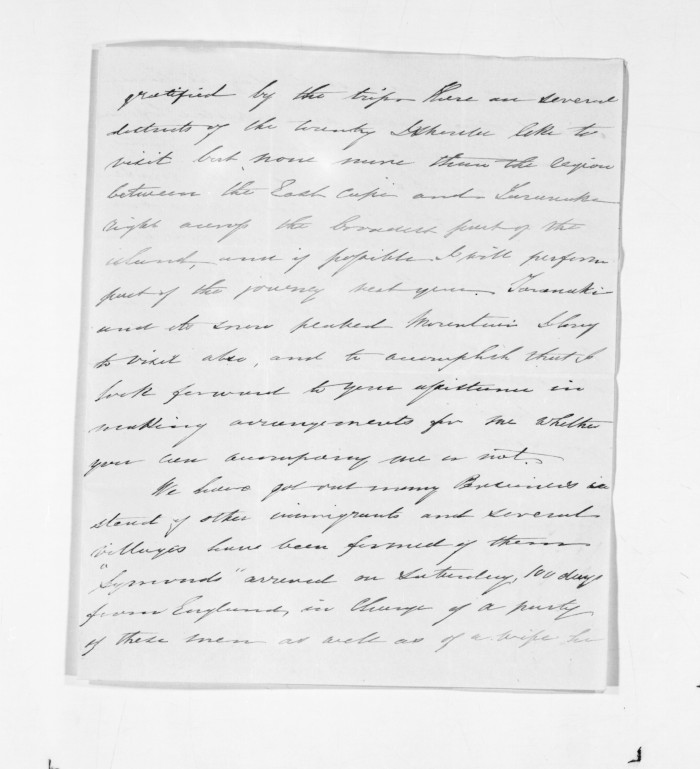 gratified by the trip. There are several
districts of the country I should like to
visit but none more than the region
between the East Cape and Taranaki
right across the broadest part of the
island, and if possible I will perform
part of the journey next year. Taranaki
and its snow peaked Mountain I long
to visit also, and to accomplish that I
look forward to your assistance in
making arrangements for me whether
you can accompany me or not.
We have got out many Pensioners in
stead of other immigrants and several
villages have been formed of them
"Symonds" arrived on Saturday, 100 days
from England, in charge of a party
of these men as well as of a wife for